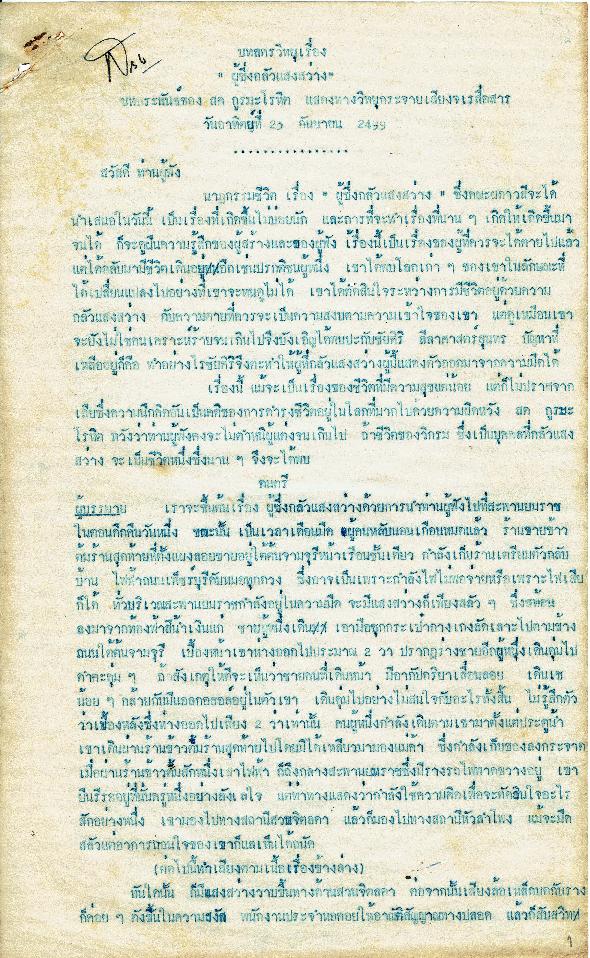 บทละครวิทยุเรื่อง
" ผู้ซึ่งกลัวแสงสว่าง"
บทประพันธ์ของ สด กูรมะโรหิต แสดงทางวิทยุกระจายเสียงจเรสื่อสาร
วันอาทิตย์ที่ 23 กันยายน 2499
................
สวัสดี ท่านผู้ฟัง
นาฏกรรมชีวิต เรื่อง " ผู้ซึ่งกลัวแสงสว่าง " ซึ่งคณะยุดาวดีจะได้
นำเสนอในวันนี้ เป็นเรื่องที่เกิดขึ้นไม่บ่อยนัก และการที่จะทำเรื่องที่นาน ๆ เกิดให้เกิดขึ้นมา
จนได้ ก็จะดูฝืนความรู้สึกของผู้สร้างและของผู้ฟัง เรื่องนี้เป็นเรื่องของผู้ที่ควรจะได้ตายไปแล้ว
แต่ได้กลับมามีชีวิตเดินอยู่อีกเช่นปรกติชนผู้หนึ่ง เขาได้พบโลกเก่า ๆ ของเขาในลักษณะที่
ได้เปลี่ยนแปลงไปอย่างที่เขาจะทนดูไม่ได้ เขาได้ตัดสินใจระหว่างการมีชีวิตอยู่ด้วยความ
กลัวแสงสว่าง กับความตายที่ควรจะเป็นความสงบตามความเข้าใจของเขา แต่ดูเหมือนเขา
จะยังไม่ใช่คนเคราะห์ร้ายจนเกินไปจึงบังเอิญได้พบปะกับชัยคีรี ลีลาศาสตร์สุนทร ปัญหาที่
เหลืออยู่ก็คือ ทำอย่างไรชัยคีรีจึงจะทำให้ผู้ที่กลัวแสงสว่างผู้นี้แสดงตัวออกมาจากความมืดได้
เรื่องนี้ แม้จะเป็นเรื่องของชีวิตที่มีความสุขแต่น้อย แต่ก็ไม่ปราศจาก
เสียซึ่งความนึกคิดอันเป็นคติของการดำรงชีวิตอยู่ในโลกที่มากไปด้วยความผิดหวัง สด กูรมะ
โรหิต หวังว่าท่านผู้ฟังคงจะไม่ตำหนิผู้แต่งจนเกินไป ถ้าชีวิตของวิกรม ซึ่งเป็นบุคคลที่กลัวแสง
สว่าง จะเป็นชีวิตหนึ่งซึ่งนาน ๆ จึงจะได้พบ
ดนตรี
ผู้บรรยาย เราจะขึ้นต้นเรื่อง ผู้ซึ่งกลัวแสงสว่างด้วยการนำท่านผู้ฟังไปที่สะพานยมราช
ในตอนดึกคืนวันหนึ่ง ขณะนั้น เป็นเวลาเดือนมืด ผู้คนหลับนอนเกือบหมดแล้ว ร้านขายข้าว
ต้มร้านสุดท้ายที่ตั้งแผงลอยขายอยู่ใต้ต้นจามจุรีหน้าเรือนชั้นเดียว กำลังเก็บร้านเตรียมตัวกลับ
บ้าน ไฟฟ้าถนนเพ็ชร์บุรีดับหมดทุกดวง ซึ่งอาจเป็นเพราะกำลังไฟไม่พอจ่ายหรือเพราะไฟเสีย
ก็ได้ ทั่วบริเวณสะพานยมราชกำลังอยู่ในความมืด จะมีแสงสว่างก็เพียงสลัว ๆ ซึ่งสะท้อน
ลงมาจากท้องฟ้าสีน้ำเงินแก่ ชายผู้หนึ่งเดิน เอามือซุกกระเป๋ากางเกงลัดเลาะไปตามข้าง
ถนนใต้ต้นจามจุรี เบื้องหน้าเขาห่างออกไปประมาณ 2 วา ปรากฏร่างชายอีกผู้หนึ่งเดินดุ่มไป
ตะคุ่ม ๆ ถ้าสังเกตให้ดีจะเห็นว่าชายคนที่เดินหน้า มีอากัปกิริยาเลื่อนลอย เดินเซ
น้อย ๆ คล้ายกับมีแอลกอฮอล์อยู่ในตัวเขา เดินดุ่มไปอย่างไม่สนใจกับอะไรทั้งสิ้น ไม่รู้สึกตัว
ว่าเบื้องหลังซึ่งห่างออกไปเพียง 2 วาเท่านั้น คนผู้หนึ่งกำลังเดินตามเขามาตั้งแต่ประตูน้ำ
เขาเดินผ่านร้านข้าวต้มร้านสุดท้ายไปโดยมิได้เหลียวมามองแม่ค้า ซึ่งกำลังเก็บของลงกระจาด
เมื่อผ่านร้านข้าวต้มสักหนึ่งเสาไฟฟ้า ก็ถึงกลางสะพานยมราชซึ่งมีรางรถไฟพาดขวางอยู่ เขา
ยืนรีรออยู่ที่นั่นครู่หนึ่งอย่างลังเลใจ แต่ท่าทางแสดงว่ากำลังใช้ความคิดเพื่อจะตัดสินใจอะไร
สักอย่างหนึ่ง เขามองไปทางสถานีสวนจิตลดา แล้วก็มองไปทางสถานีหัวลำโพง แม้จะมืด
สลัวแต่อาการถอนใจของเขาก็แลเห็นได้ถนัด
(ต่อไปนี้ทำเสียงตามเนื้อเรื่องข้างล่าง)
ทันใดนั้น ก็มีแสงสว่างวาบขึ้นทางด้านสวนจิตลดา ต่อจากนั้นเสียงล้อเหล็กบดกับราง
ก็ค่อย ๆ ดังขึ้นในความสงัด พนักงานประจำหอคอยให้อาณัติสัญญาณทางปลอด แล้วก็สับสวิทช์
1